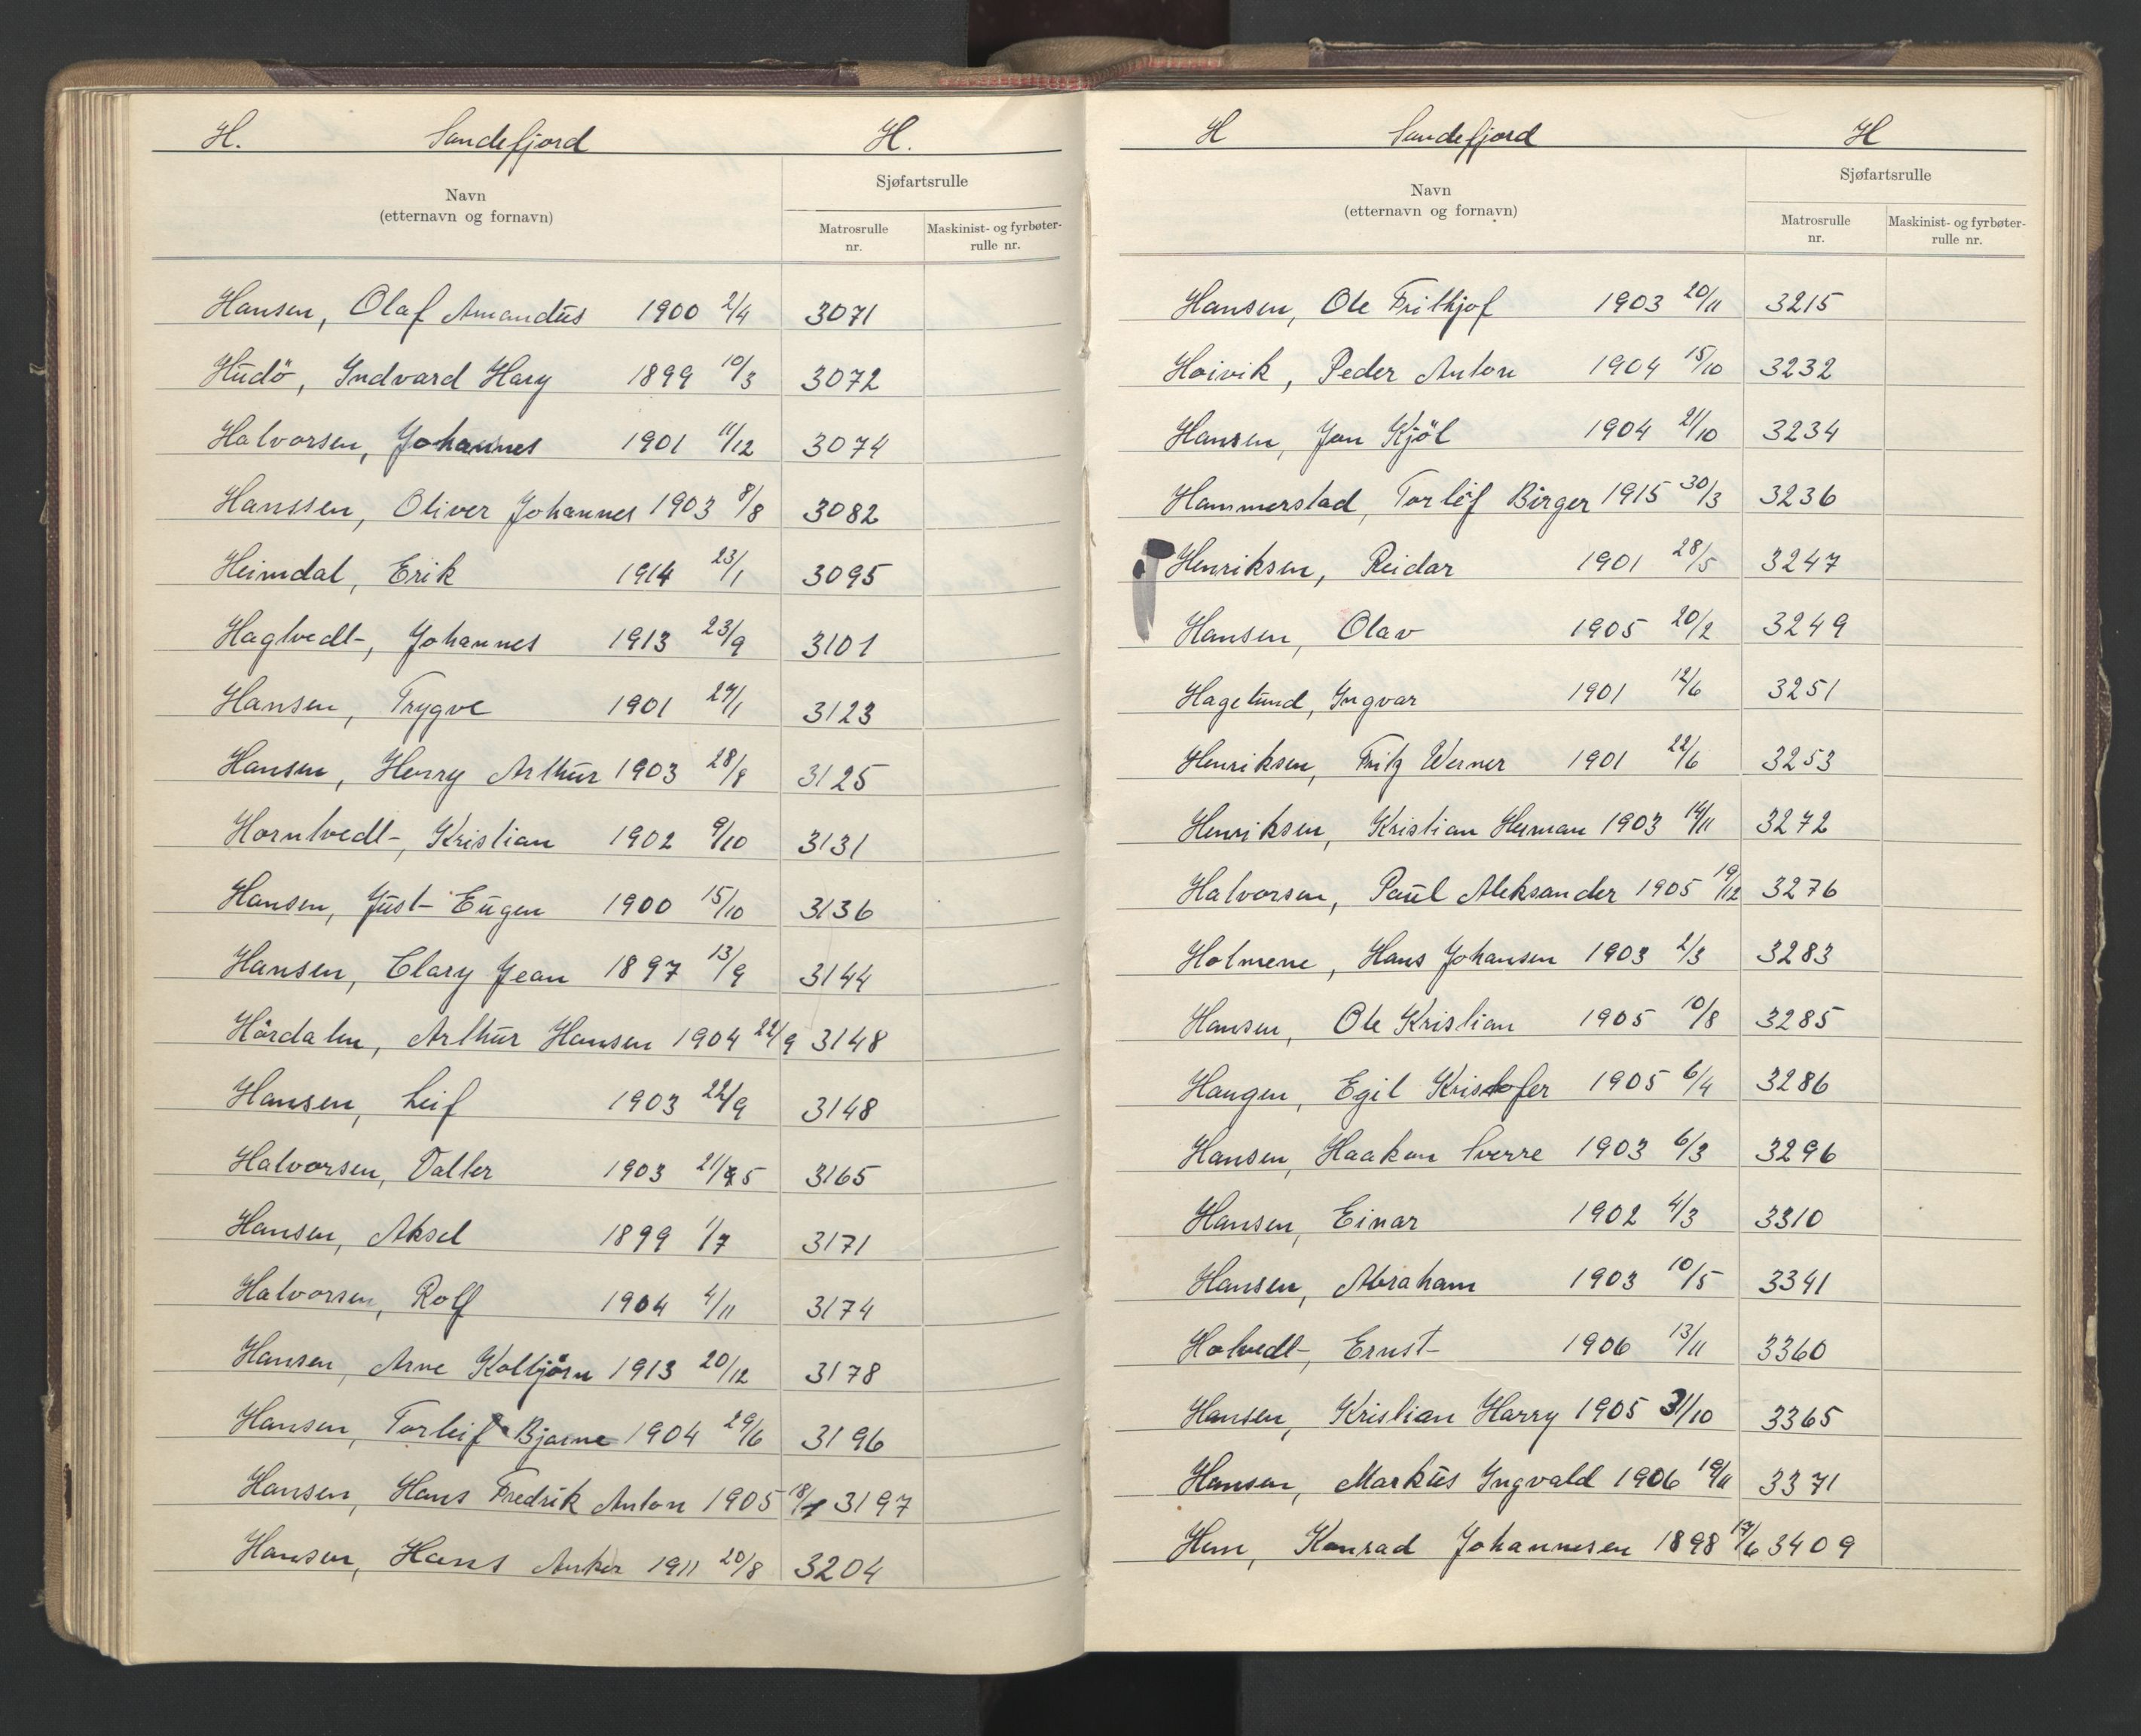 H. Sandefjord H.
Sjøfartsrulle
Navn
(etternavn og fornavn)
Matrosrulle nr.
Maskinist- og fyrbøter-rulle nr.
Hansen, Olaf Amandus 1900 2/4 3071
Hudö, Indvard Hary 1899 10/3 3072
Halvorsen, Johannes 1901 11/12 3074
Hanssen, Oliver Johannes 1903 8/8 3082
Heimdal, Erik 1914 23/1 3095
Hagtvedt, Johannes 1913 23/9 3101
Hansen, Trygve 1901 3123
Hansen, Henry Arthur 1903 28/8 3125
Horntvedt, Kristian 1902 9/10 3131
Hansen, Just Eugen 1900 15/10 3136
Hansen, Clary Jean 1897 13/9 3144
Hårdalen, Arthur Hansen 1904 22/9 3148
Hansen, Leif 1903 22/9 3148
Halvorsen, Valter 1903 3165
Hansen, Aksel 1899 1/7 3171
Halvorsen, Rolf 1904 4/11 3174
Hansen, Arne Kolbjörn 1913 20/12 3178
Hansen, Torleif Bjarne 1904 29/6 3196
Hansen, Hans Fredrik Anton 1905 3197
Hansen, Hans Anker 1911 20/8 3204
H Sandefjord H
Sjøfartsrulle
Navn
(etternavn og fornavn)
Matrosrulle nr.
Maskinist- og fyrbøter-rulle nr.
Hansen, Ole Frithjof 1903 20/11 3215
Hoivik, Peder Anton 1904 15/10 3232
Hansen, Jon Kjöl 1904 21/10 3234
Hammerstad, Torleif Birger 1915 30/3 3236
Henriksen, Reidar 1901 28/5 3247
Hansen, Olav 1905 20/2 3249
Hagelund, Ingvar 1901 12/6 3251
Henriksen, Fritz Werner 1901 22/6 3253
Henriksen, Kristian Herman 1903 14/11 3272
Halvorsen, Paul Aleksander 1905 19/12 3276
Holmene, Hans Johansen 1903 2/3 3283
Hansen, Ole Kristian 1905 10/8 3285
Haugen, Egil Kristofer 1905 6/4 3286
Hansen, Haakon Sverre 1903 6/3 3296
Hansen, Einar 1902 4/3 3310
Hansen, Abraham 1903 10/5 3341
Holvedt, Ernst 1906 13/11 3360
Hansen, Kristian Harry 1905 31/10 3365
Hansen, Markus Ingvald 1906 19/11 3371
Hem, Konrad Johannesen 1898 17/6 3409